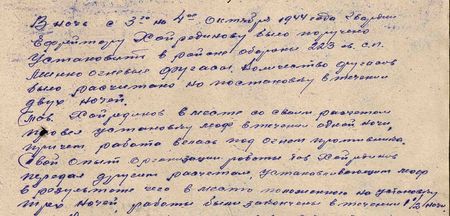 В ночь с 3го на 4ое Октября 1944 года Гвардии
Ефрейтору Хайрединову было поручено
установить в районе обороны 223 гв. с.п.
Минно огневые фугасы. Количество фугасов
было расчитано на постановку в течении
двух ночей.
Тов. Хайрединов вместе со своим расчетом
провел установку моф в течении одной ночи,
причем работа велась под огнем противника.
Свой опыт организации работы тов Хайрединов
передал другим расчетам, устанавливающим моф
в результате чего вместо положенного на установку
трех ночей, работы были закончены в течении 1 1/2 ночи.